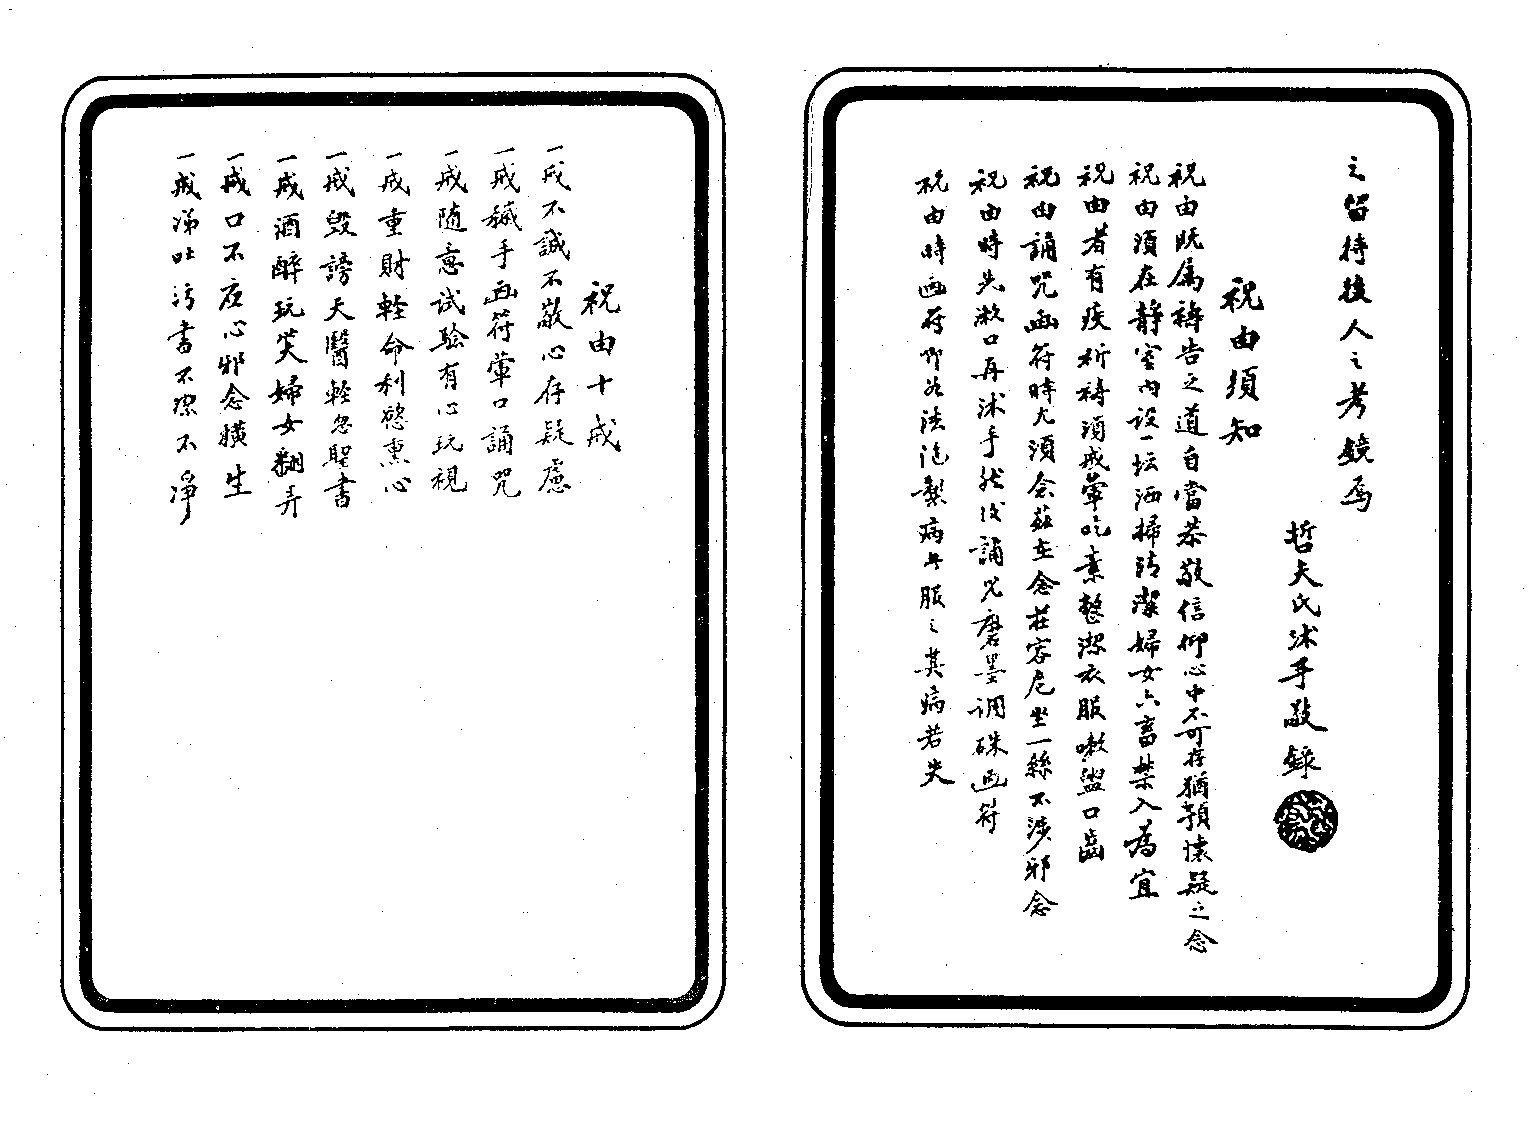 之留待後人之考鏡焉
哲夫氏沐手敬錄
祝由須知
祝由既属禱告之道自當恭敬信仰心中不可存猶預懷疑之念
祝由須在静室内設一坛洒掃清潔婦女六畜禁入為宜
祝由者有疾祈禱須戒葷吃素整潔衣服嗽盥口齒
祝由誦咒画符時尤須念茲在念莊容危坐一絲不涉邪念
祝由時先漱口再沐手然後誦咒磨墨调硃画符
祝由時画符即如法泡製病者服之其病若失
祝由十戒
一戒不誠不敬心存疑慮
一戒穢手画符葷口誦咒
一戒随意試验有心玩視
一戒重財輕命利慾熏心
一戒毁謗天醫輕忽聖書
一戒酒醉玩笑婦女翻弄
一戒口不应心邪念横生
一戒涕吐污書不潔不淨